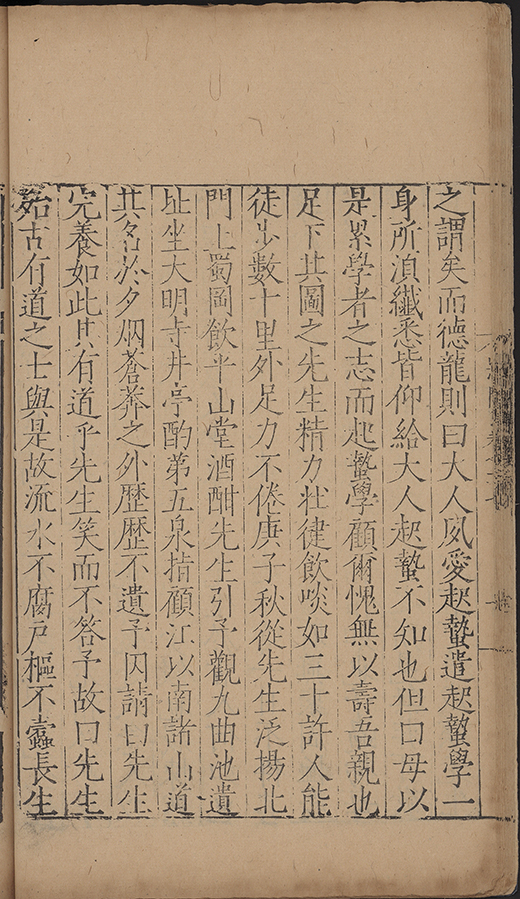 之謂矣而德龍則曰大人夙愛起蟄遣起蟄學一
身所湏纖悉皆仰給大人起蟄不知也但曰毋以
是累學者之志而起蟄學顧爾愧無以壽吾親也
足下其圖之先生精力壯徤飲啖如三十許人能
徒步數十里外足力不倦庚子秋從先生泛揚北
門上蜀岡飲平山堂酒酣先生引予觀九曲池遺
址坐大明寺井亭酌第五泉指顧江以南諸山道
其名於夕烟蒼莽之外歷歷不遺予因請曰先生
完養如此其有道乎先生笑而不答予故曰先生
殆古有道之士與是故流水不腐戶樞不蠹長生